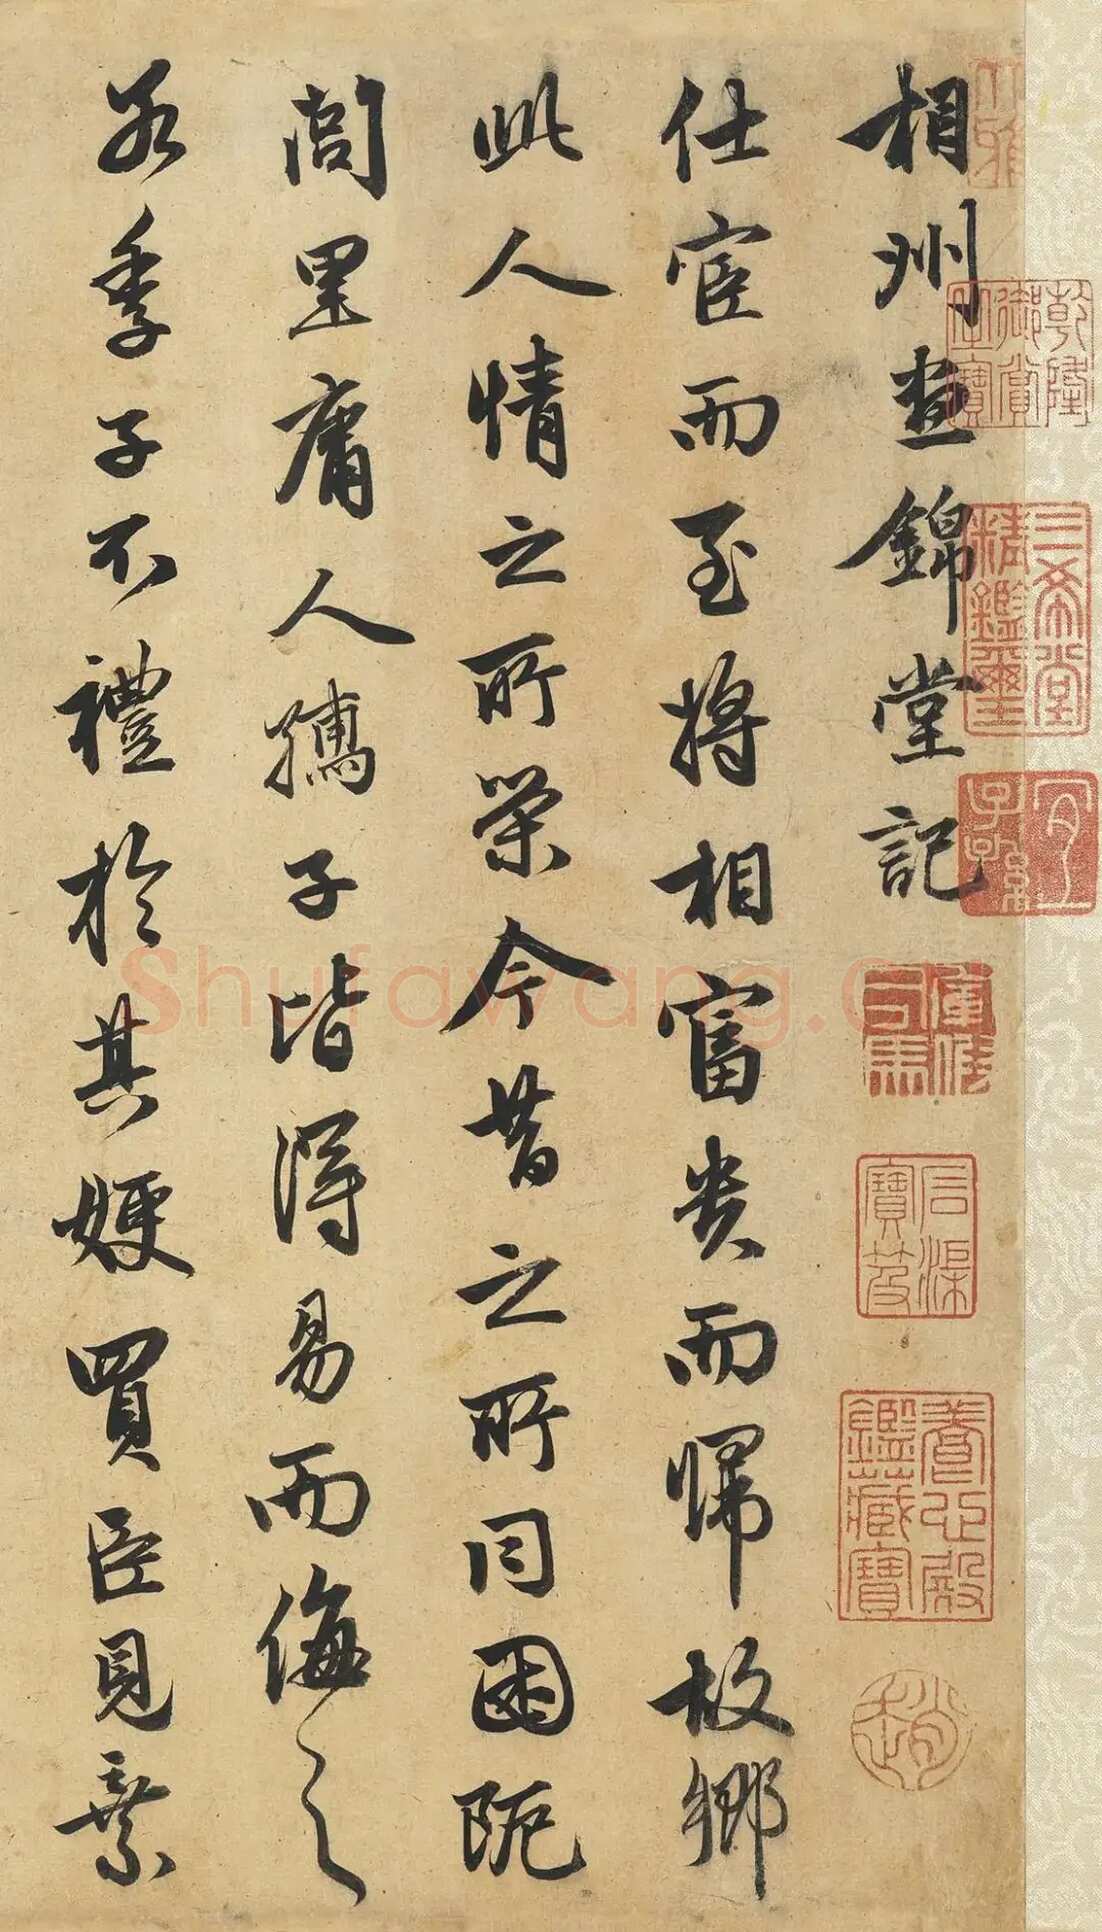 相州晝錦堂記
仕宦而至將相富貴而歸故鄉
此人情之所榮今昔之所同困阨
閭里庸人孺子皆得易而侮之
若季子不禮於其嫂買臣見棄
三希堂精鑑璽
宜子孫
石渠寶笈
養心殿鑑藏寶
趙
Shufawang.c